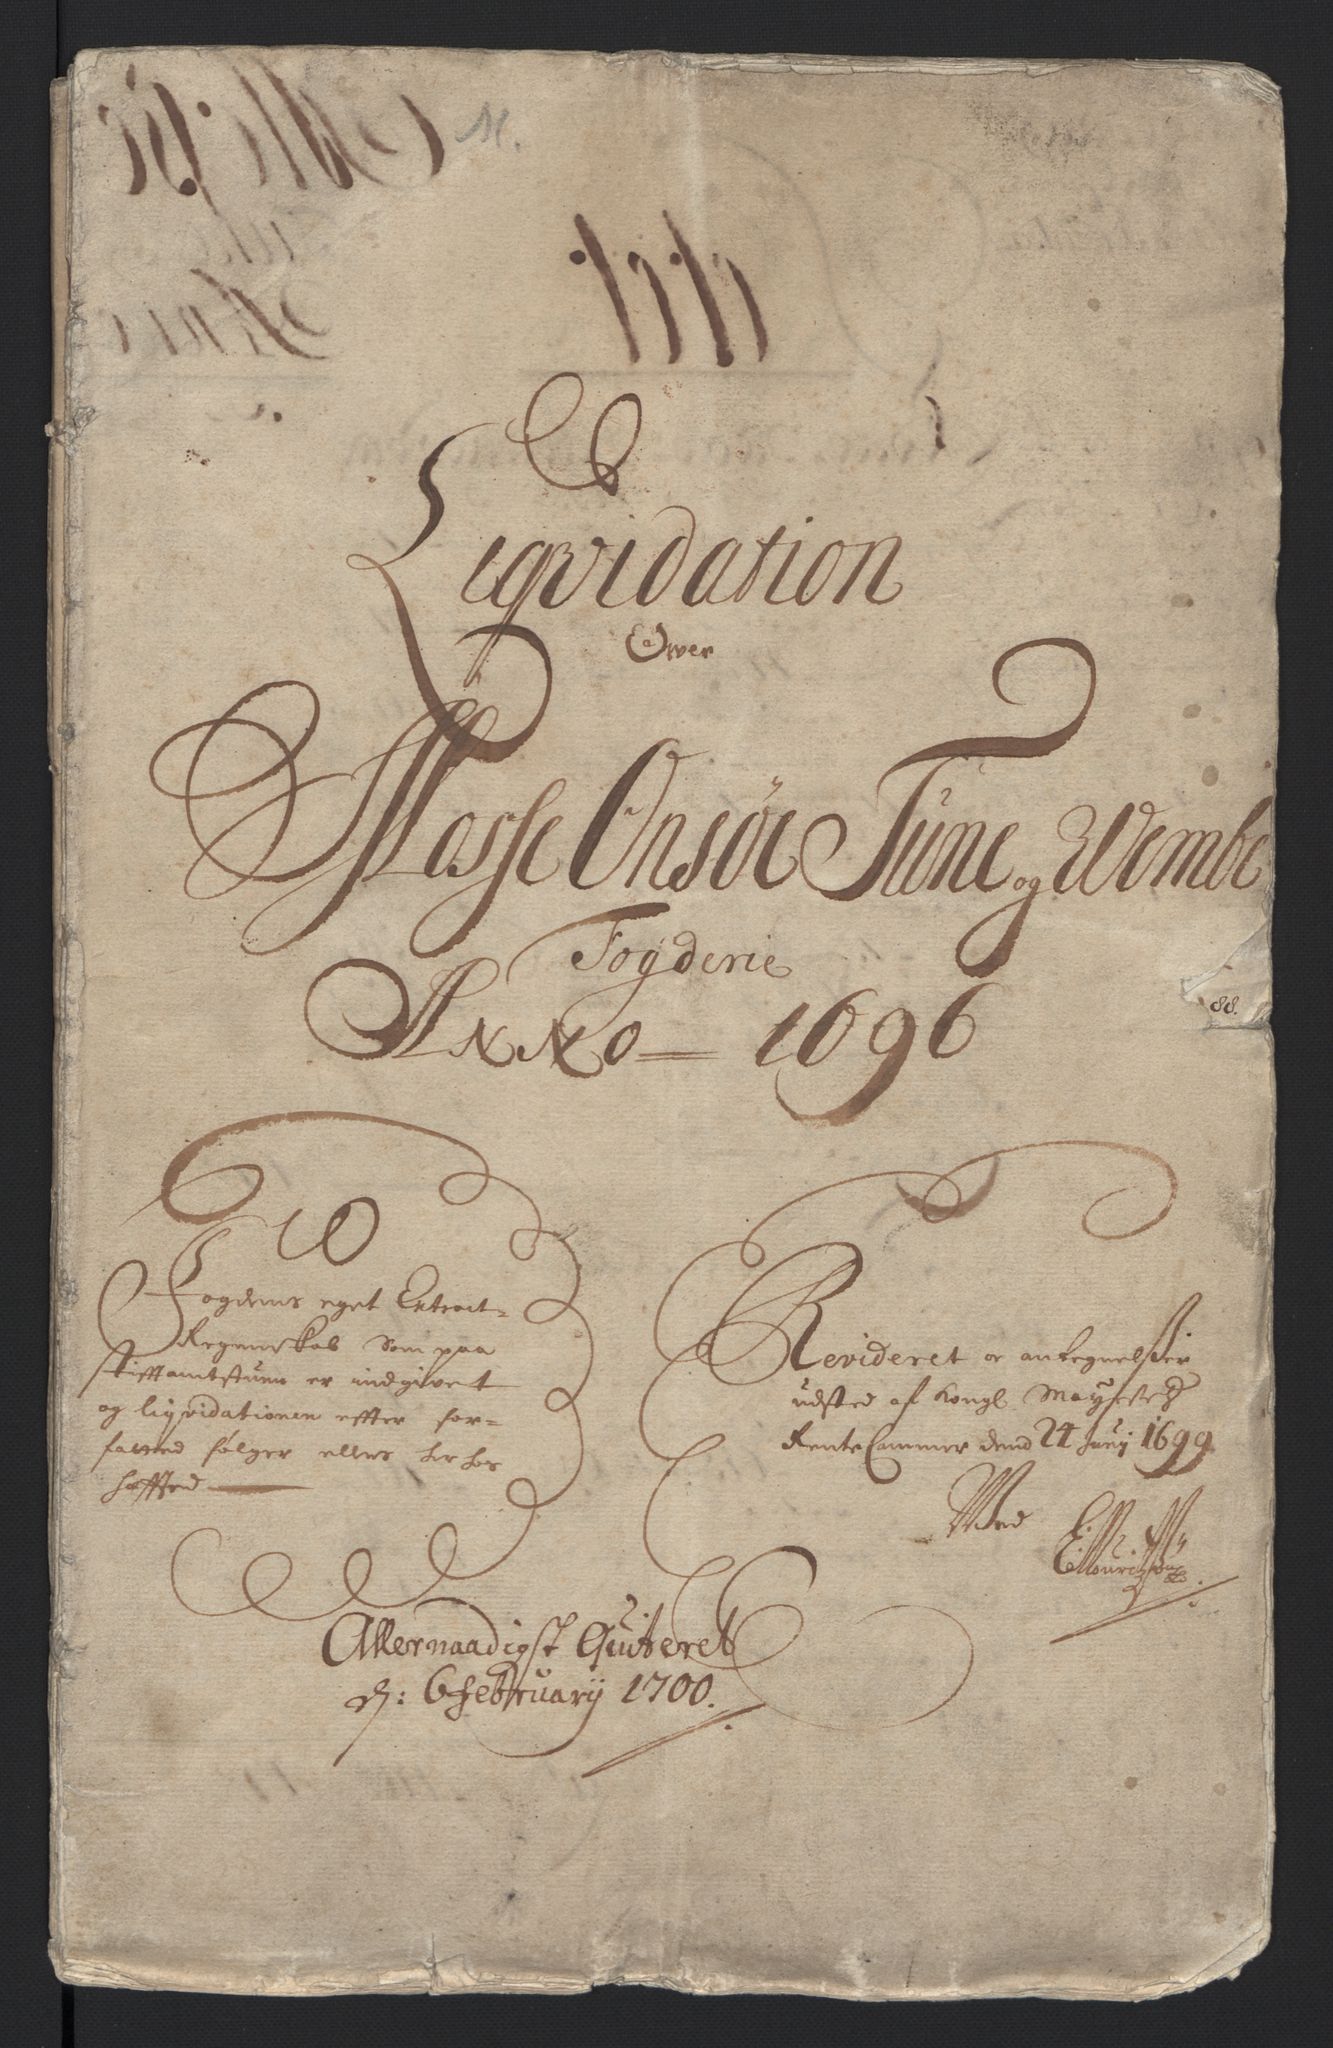 Liqvidation
Over
Mosse Onsøe Tune og Wembe
Fogderie
Anno 1696
88.
Fogdens eget Extract
Regenskab som paa
Stifftamtstuen er indgivet
og liqvidationen effter for=
fatted følger ellers her hos
heffted
Revideret oc antegnelser
udsted af Kongl Mayestes
Rente Cammer dend 24 Junij 1699
Med
Allernaadigst Quiteret
d: 6 February 1700.